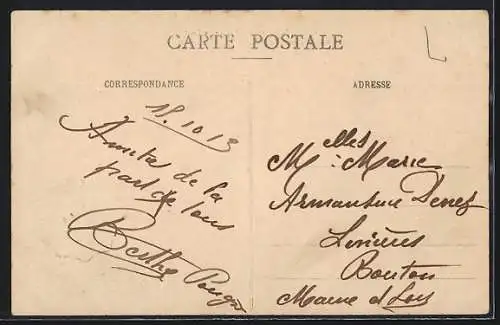 CARTE POSTALE
CORRESPONDANCE
ADRESSE
18.10.13
Amitié de la
part de tous
Berthe
Melles Marie
Armantine
Bouton
Maine et Loir